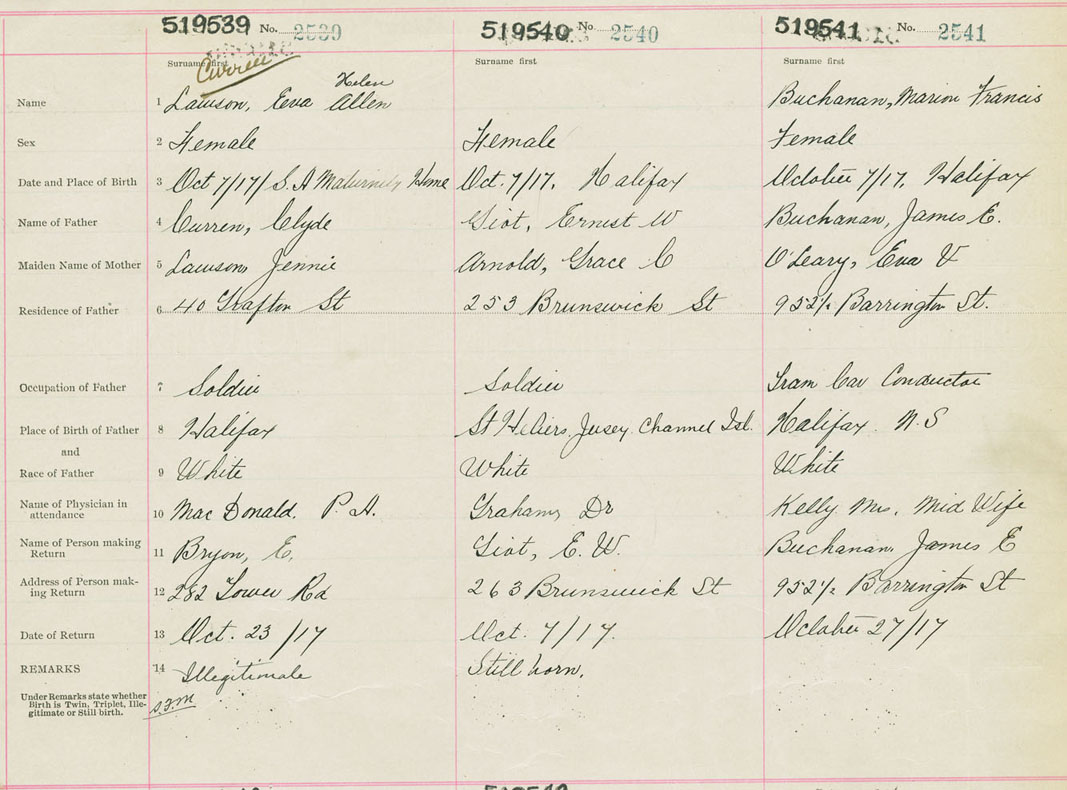 519539 No. 2539 519540 No 2540 519541 No. 2541
Surname first Surname first Surname first
Curren
Helen
Name 1 Lawson, Eva Allen Buchanan, Marion Francis
Sex 2 Female Female Female
Date and Place of Birth 3 Oct 7/17/ S. A Maternity Home Oct. 7/17. Halifax October 7/17. Halifax
Name of Father 4 Curren, Clyde Giot, Ernest W Buchanan, James E.
Maiden Name of Mother 5 Lawson, Jennie Arnold, Grace C O'Leary, Eva V
Residence of Father 6 40 Grafton St 253 Brunswick St 952½ Barrington St.
Occupation of Father 7 Soldier Soldier Tram Car Conductor
Place of Birth of Father 8 Halifax St Heliers, Jersey Channel Isl. Halifax N. S
and
Race of Father 9 White White White
Name of Physician in
attendance 10 Mac Donald, P. A. Graham, Dr Kelly Mrs. Mid Wife
Name of Person making
Return 11 Bryon, E. Giot, E. W. Buchanan, James E
Address of Person mak-
ing Return 12 282 Tower Rd 263 Brunswick St 952½ Barrington St
Date of Return 13 Oct. 23/17 Oct. 7/17. October 27/17
REMARKS 14 Illegitimate Still born.
Under Remarks state whether
Birth is Twin, Triplet, Ille-
gitimate or Still birth.